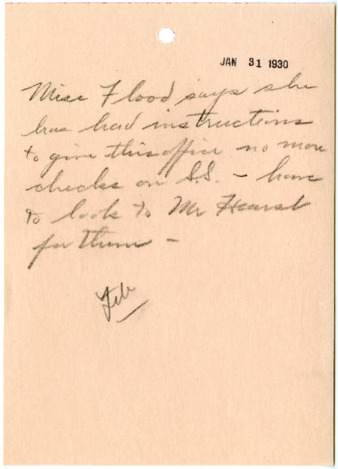 JAN 31 1930
Miss Flood says she
has had instructions
to give this office no more
checks on S.S. - have
to look to Mr Hearst
for them -